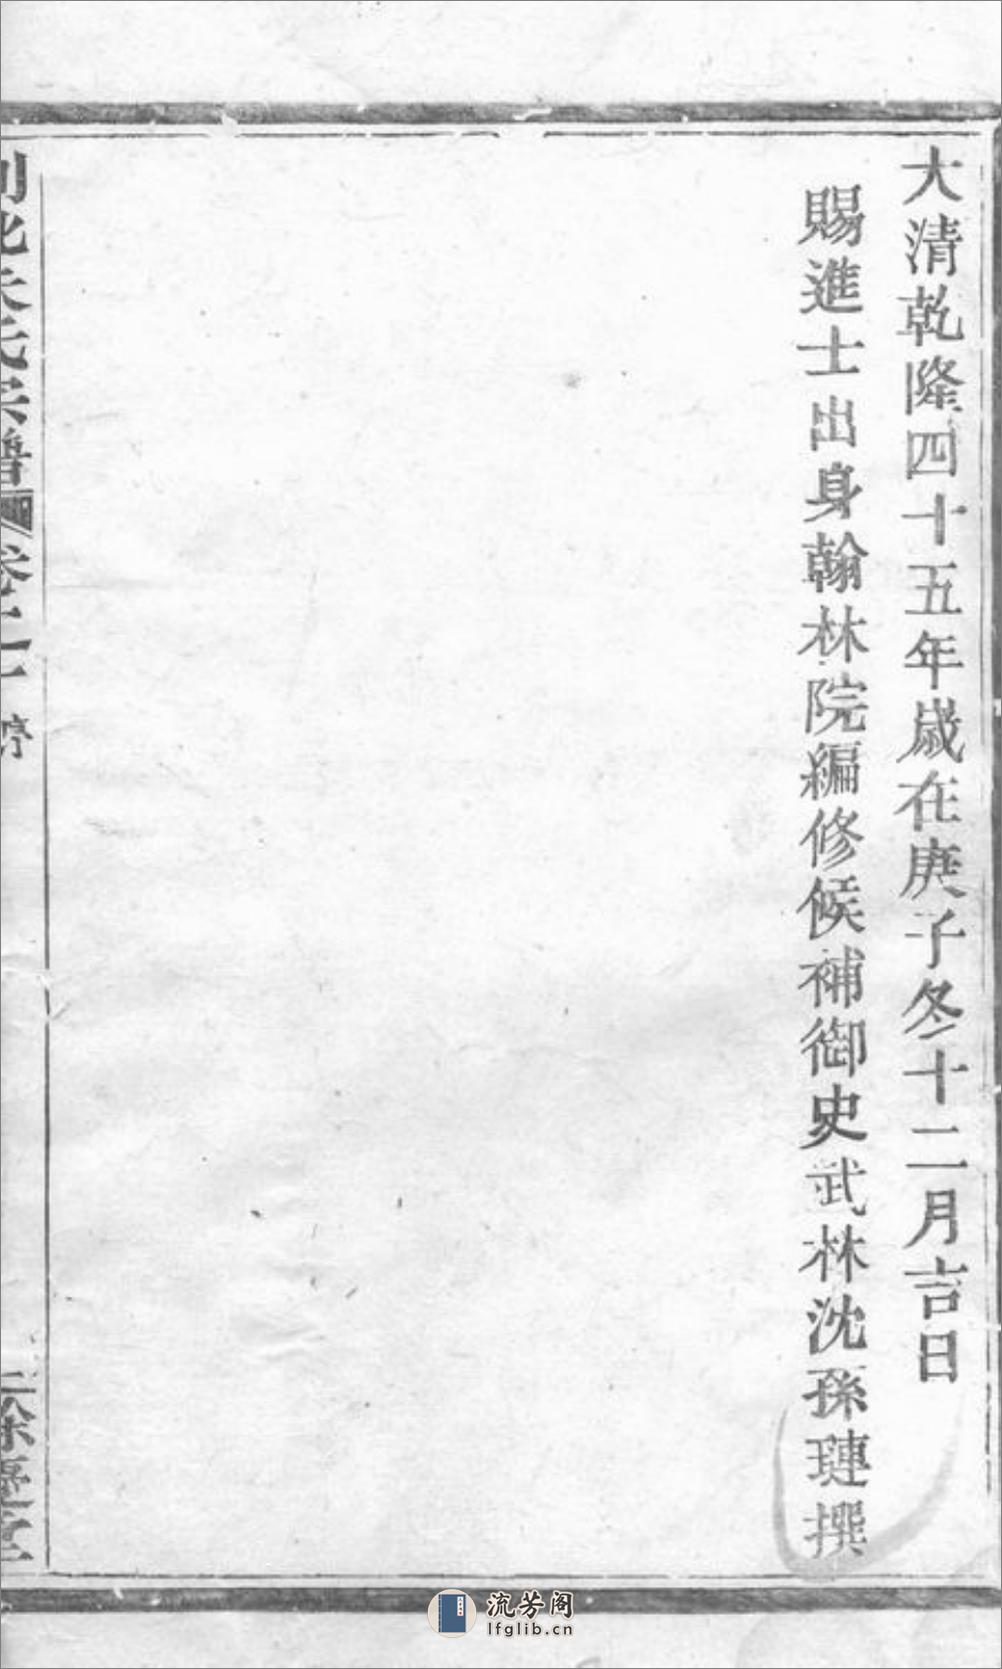 大清乾隆四十五年歲在庚子冬十二月吉日
賜進士出身翰林院編修候補御史武林沈孫璉撰
氏宗譜
卷之一
序
流芳阁
lfglib.cn